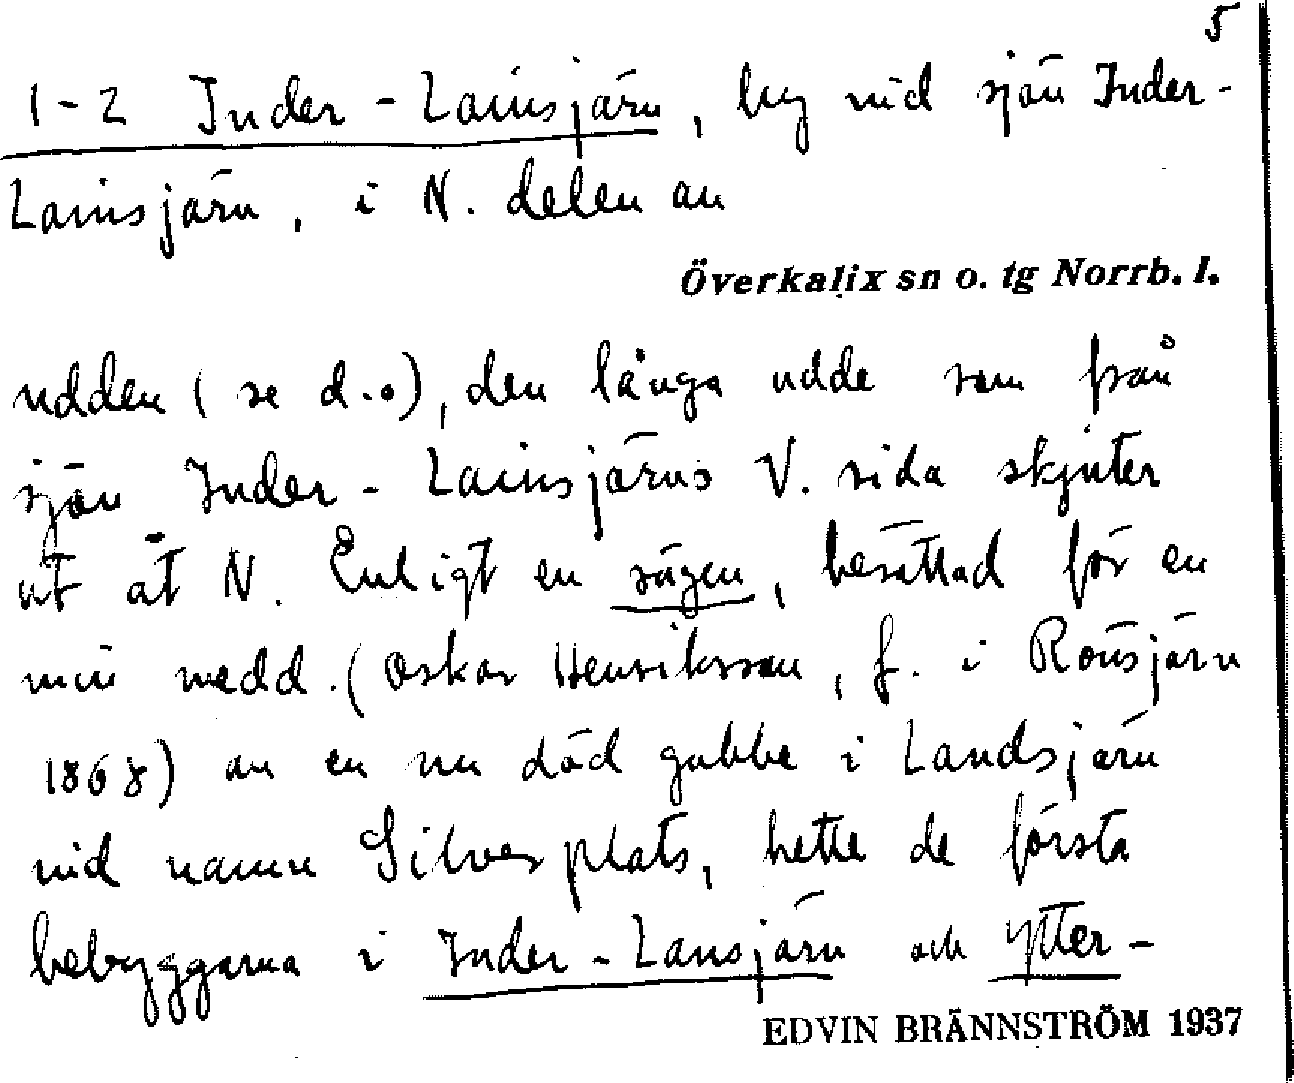 5
1-2 Inder-Lainsjärv, by vid sjön Inder-
Lainsjärv, i N. delen av
Överkalix sn o. tg Norrb. l.
udden (se d.o), den långa udde som från
sjön Inder-Lainsjärvs V. sida skjuter
ut åt N. Enligt en sägen, berättad för en
min medd. (Oskar Henriksson, f. i Rönsjärv
1868) av en nu död gubbe i Landsjärv
vid namn Silverplats, hette de första
bebyggarna i Inder-Lansjärv och Ytter-
EDVIN BRÄNNSTRÖM 1937